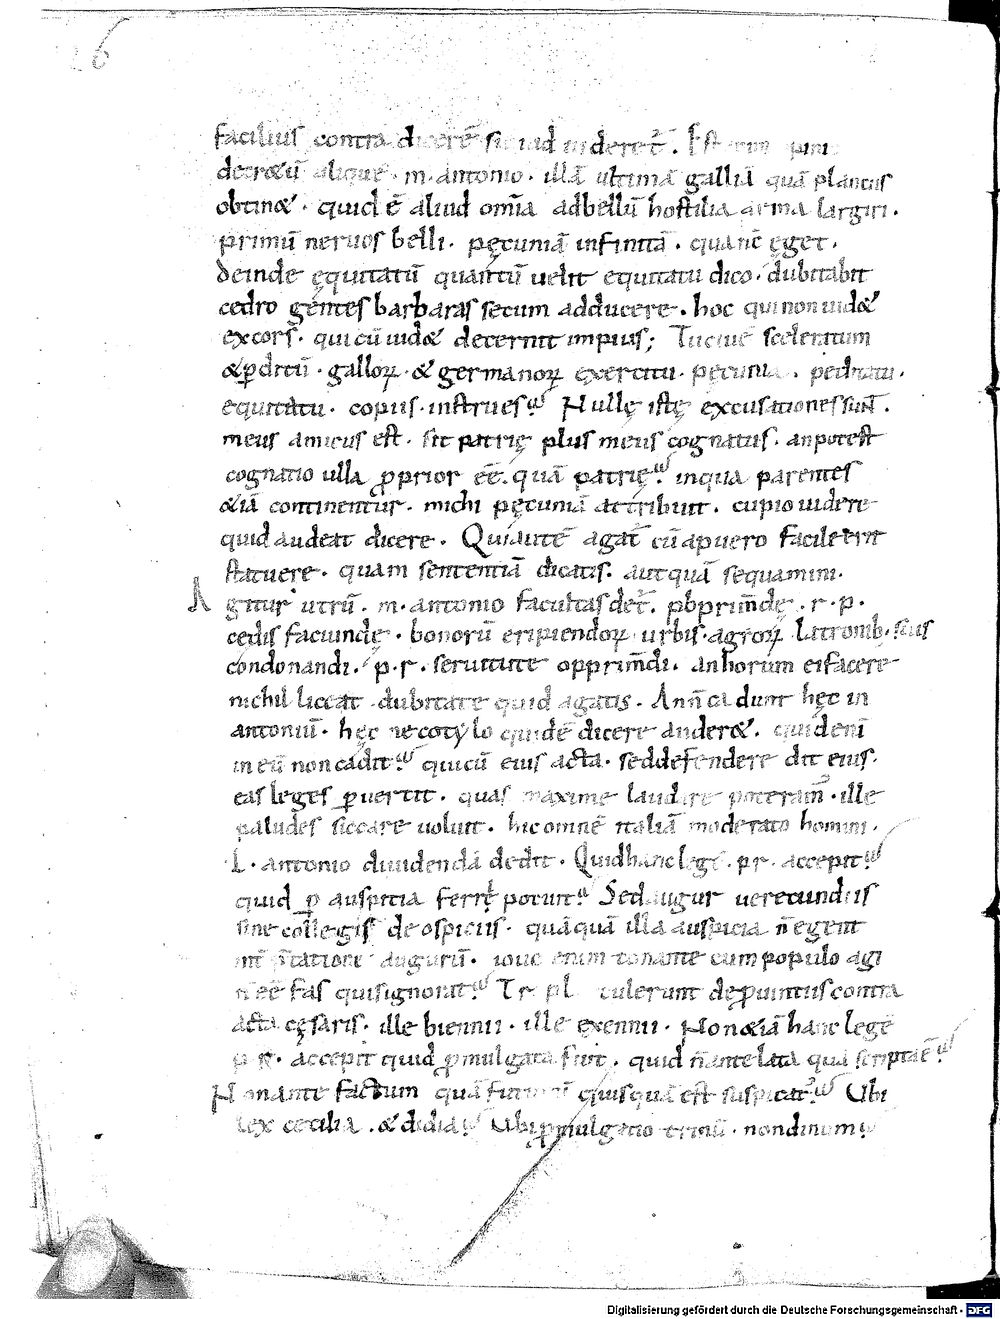 26
facilius contra dicere᷒ si iud uideret᷒. Est
decr&ū alique᷒ · m · antonio · illā ultimā galliā quā plancus
obtin& · quid ē aliud om̄ia adbellū hostilia arma largiri .
primū neruos belli · pęcuniā infinitā · qua nc̄ ęget .
deinde ęquitatū quantū uelit equitatu dico · dubitabit
cedro gentes barbaras secum adducere . hoc qui non uid&
excors̄ · qui cū uid& decernit impius ; Tu ciue sceleratum
&p̱ditū · galloꝝ · & germanoꝝ exercitu · pęcunia . peditatu .
equitatu · copiis · instrues? Nullę istę excusationes sunt̄ .
meus amicus est · sit patrię plus meus cognatus · an potest
cognatio ulla p̱prior ēē · quā patrię? inqua parentes
&iā continentur · michi pęcuniā attribuit . cupio uidere
quid audeat dicere . Quiautē agat̄ cū apuero facile erit
statuere · quam sententiā dicatis · aut quā sequamini .
Agitur utrū . m · antonio facultas det̄ . pbprim̄dę . r · p .
cedis faciundę · bonorū eripiendoꝝ urbis · agroꝝ latronib; · suis
condonandi . p · r · seruitute opprim̄di . an horum ei facere
nichil liceat dubitate quid agatis · An n̄ cadunt hęc in
antoniū · hęc ne cotylo quidē dicere ander& . quid enī
in eū non cadit? qui cū eius acta · sed defendere dit eius ·
eas leges p̱uertit . quas maxime laudare poteram̄ · ille
paludes siccare uoluit . hic omnē italiā moderato homini .
L . antonio diuidendā dedit · Quid hanc legē . p r . accepit?
quid p̱ auspitia ferrę potuit? Sed augur uerecundus
sine collegis de ospiciis · quāquā illa auspicia n̄ egent
int̄p̄tatione augurū . ioue enim tonante cum populo agi
n̄ ēē fas quis ignorat? Tr . pl tulerunt de p̱uintiis contra
acta cęsaris · ille biennii · ille exennii · Non &iā hanc legē
p R . accepit quid p̱mulgata fuit . quid n̄ ante lata quā scripta ē?
Non ante factum quā futurū quisquā est suspicat᷒? Ubi
lex cecilia . & didia? Ubi p̱mulgatio trinū · nondinum?
Digitalisierung gefördert durch die Deutsche Forschungsgemeinschaft - DFG